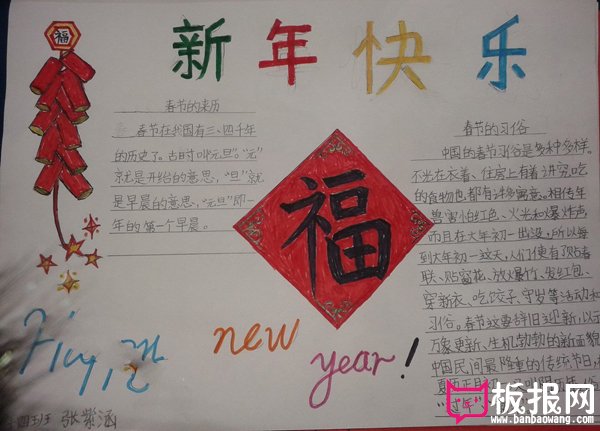 福
新年快乐
春节的来历
春节在我国有三、四千年
的历史了。古时叫“元旦”。“元”
就是开始的意思，“旦”就
是早晨的意思，“元旦”即一
年的第一个早晨。
福
春节的习俗
中国的春节习俗是多种多样。
不光在衣着、住房上有着讲究，吃
的食物也都有许多寓意。相传年
兽害怕红色、火光和爆炸声
而且在大年初一出没，所以每
到大年初一这天，人们便有了贴春
联、贴窗花、放爆竹、发红包、
穿新衣、吃饺子、守岁等活动和
习俗。春节这要辞旧迎新，以
万象更新、生机勃勃的新面貌
中国民间最隆重的传统节日，
new
year!
班 张紫涵
板报网
www.banbaowang.com